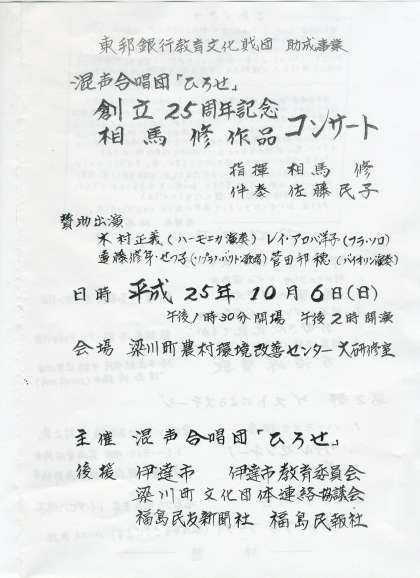 東邦銀行教育文化財団 助成事業
混声合唱団「ひろせ」
創立25周年記念
相馬修作品コンサート
指揮 相馬 修
伴奏 佐藤民子
賛助出演
木村正義(ハーモニカ演奏) レイ・アロハ洋子(フラ・ソロ)
遠藤修平・せつ子(ソプラノ・バリトン歌唱) 菅田邦穂(バイオリン演奏)
日時 平成25年10月6日(日)
午後1時30分開場 午後2時開演
会場 梁川町農村環境改善センター大研修室
主催 混声合唱団「ひろせ」
後援 伊達市 伊達市教育委員会
梁川町文化団体連絡協議会
福島民友新聞社 福島民報社